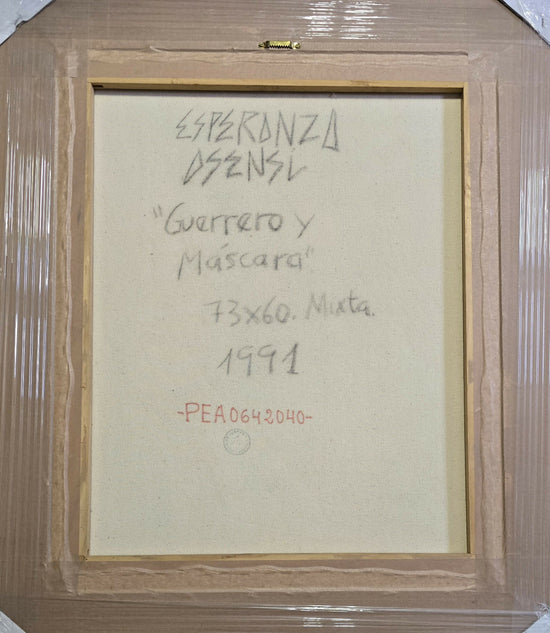 ESPERANZA
ASENSI
"Guerrero y
Máscara"
73x60. Mixta.
1991
-PEA0642040-